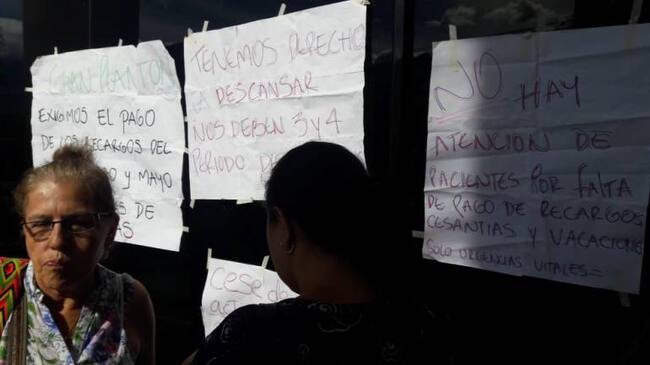 GRAN PLANTÓN
EXIGIMOS EL PAGO
DE LOS RECARGOS DEL
Y MAYO
S DE
AS
TENEMOS DERECHO
A DESCANSAR
NOS DEBEN 3 Y 4
PERIODO DE
CESE DE
NO HAY
ATENCION DE
PACIENTES POR FALTA
DE PAGO DE RECARGOS
CESANTIAS Y VACACIONE
SOLO URGENCIAS VITALES=